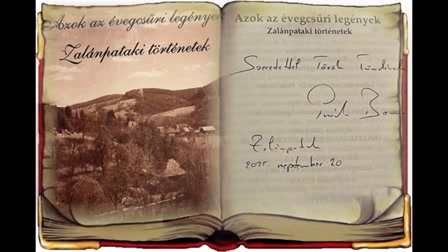 Azok az évegcsűri legények
Zalánpataki történetek
Azok az évegcsűri legények
Zalánpataki történetek
Szeretettel Török Tündének
Zalánpatak
2025. szeptember 20